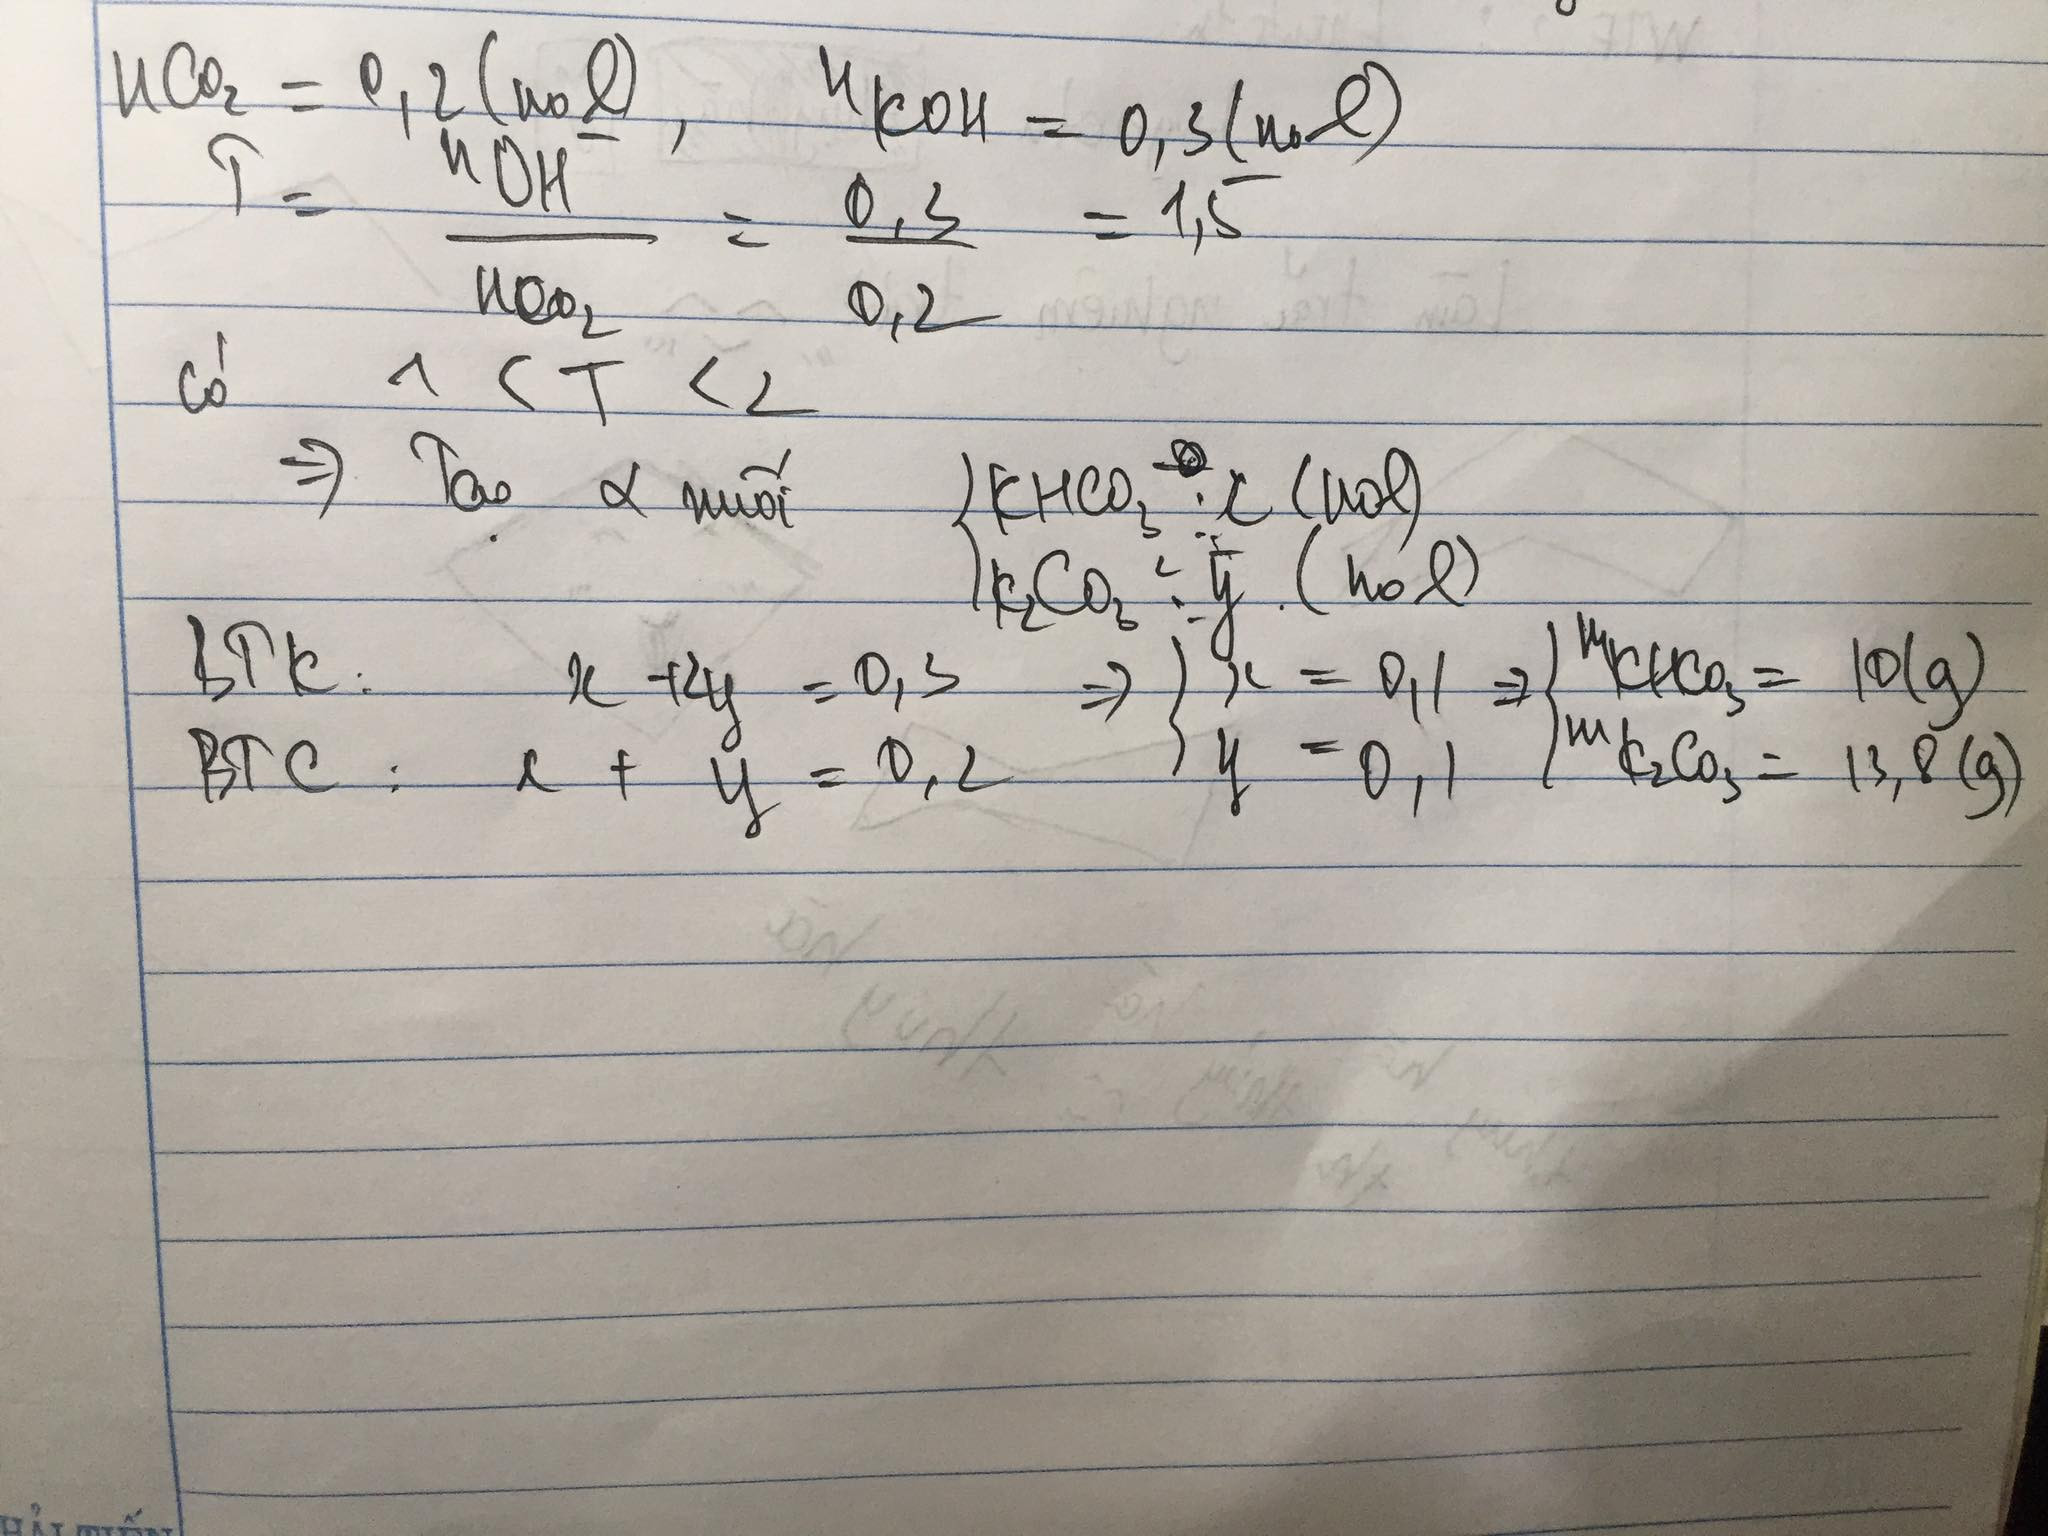 nCO₂ = 0,2 (mol), nKOH = 0,3 (mol)
T = nOH / nCO₂ = 0,3 / 0,2 = 1,5
Có 1 < T < 2
⇒ Tạo 2 muối { KHCO₃ : x (mol)
K₂CO₃ : y (mol)
BTK : x + 2y = 0,3 ⇒ { x = 0,1 ⇒ { mKHCO₃ = 10 (g)
BTC : x + y = 0,2 y = 0,1 mK₂CO₃ = 13,8 (g)
HẢI TIẾN